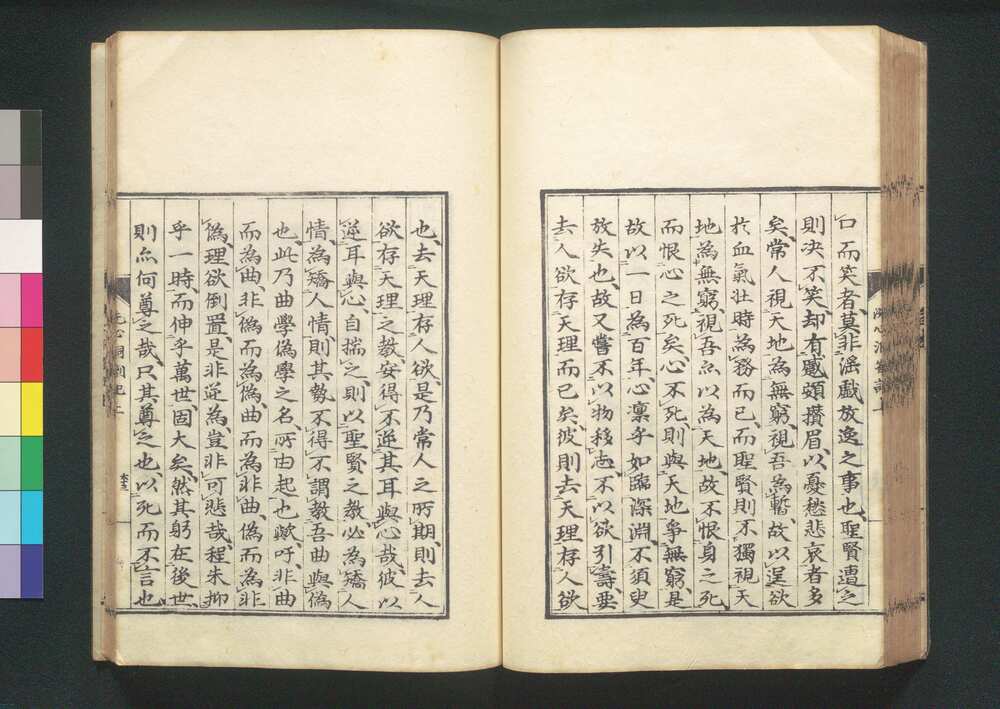 口而笑者、莫非滛戯放逸之事也、聖賢遭之
則决不笑、却有蹙頞攢眉、以憂愁悲哀者多
矣、常人視天地為無窮、視吾為暫、故以逞欲
於血氣壯時為務而已、而聖賢則不獨視天
地為無窮、視吾亦以為天地、故不恨身之死、
而恨心之死矣、心不死、則與天地争無窮、是
故以一日為百年、心凛乎如臨深淵、不須臾
放失也、故又嘗不以物移志、不以欲引壽、要
去人欲存天理而已矣、彼則去天理存人欲
也、去天理存人欲、是乃常人之所期、則去人
欲存天理之教、安得不逆其耳與心哉、彼以
逆耳與心、自揣之、則以聖賢之教、必為矯人
情、為矯人情、則其勢不得不謂教吾曲與偽
也、此乃曲學偽學之名、所由起也歟、吁、非曲
而為曲、非偽而為偽、曲而為非曲、偽而為非
偽、理欲倒置、是非逆為、豈非可悲哉、程朱抑
乎一時而伸乎萬世、固大矣、然其躬在後世、
則亦何尊之哉、只其尊之也、以死而不言也